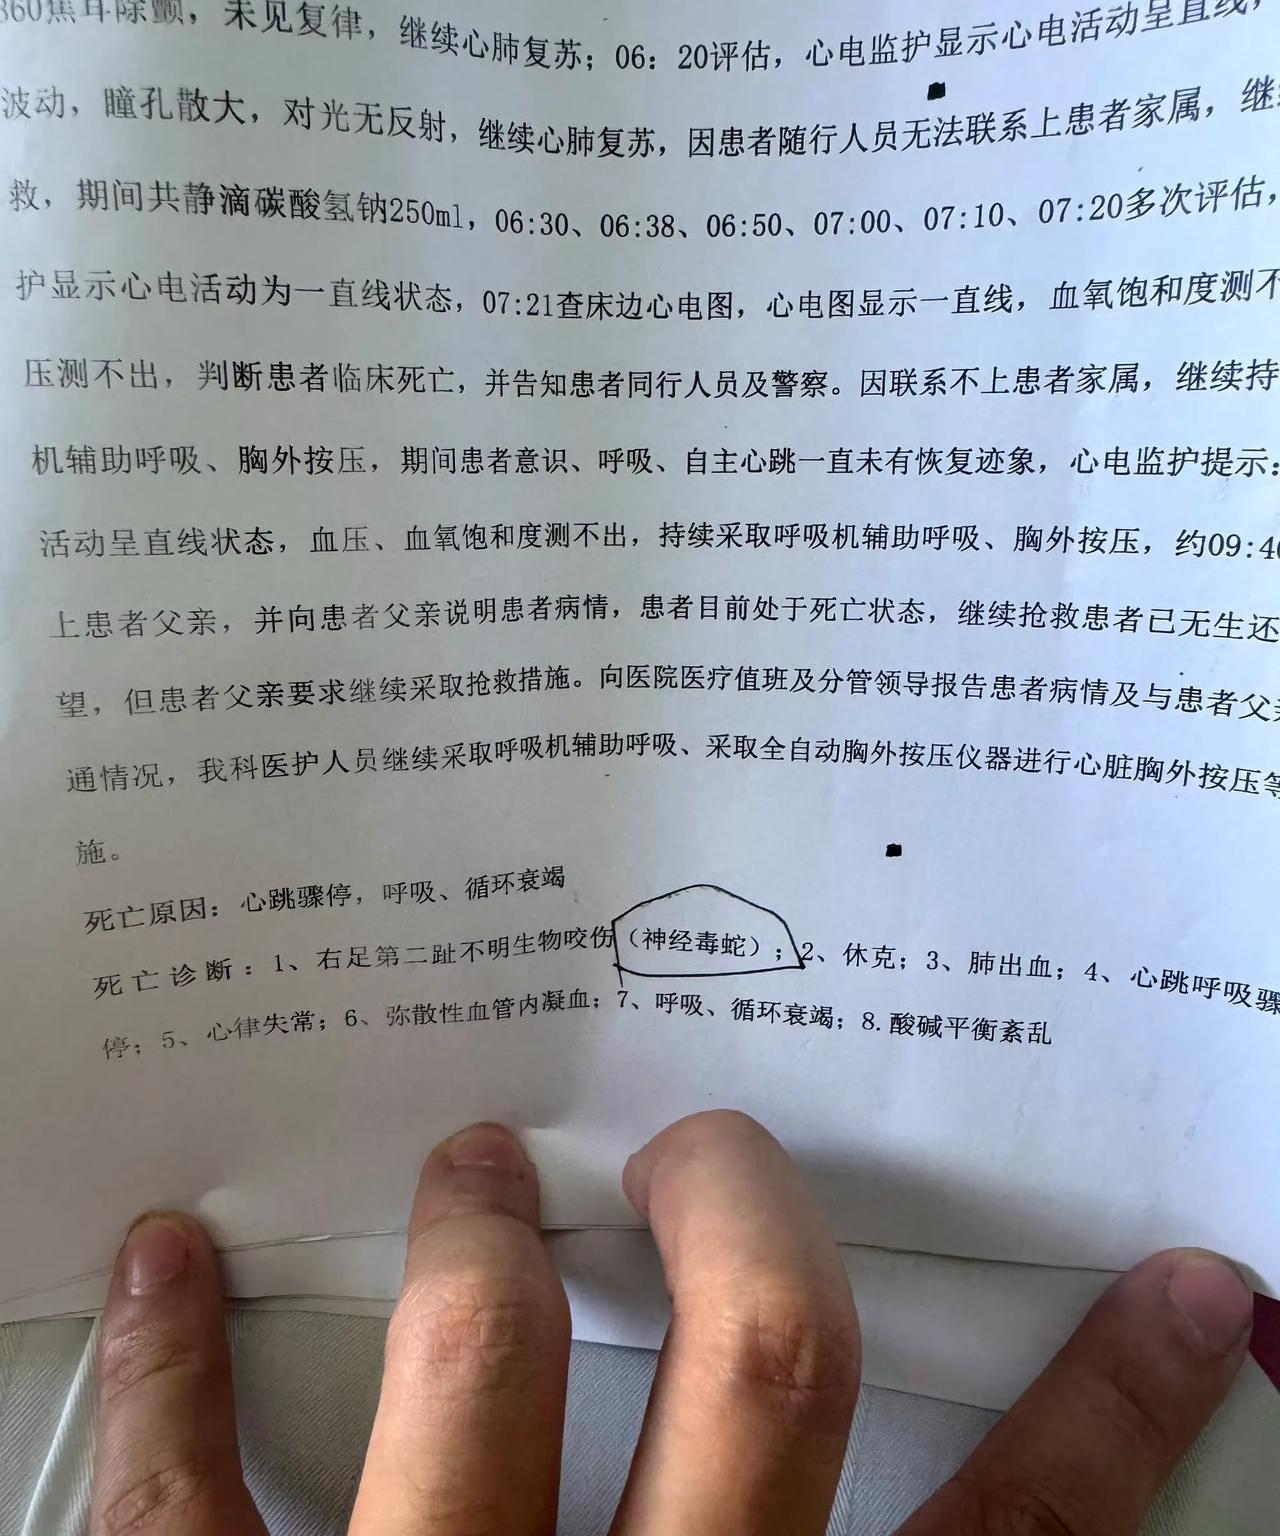 360焦耳除颤，未见复律，继续心肺复苏；06：20评估，心电监护显示心电活动呈直线，
波动，瞳孔散大，对光无反射，继续心肺复苏，因患者随行人员无法联系上患者家属，继
救，期间共静滴碳酸氢钠250ml，06:30、06:38、06:50、07:00、07:10、07:20多次评估，
护显示心电活动为一直线状态，07:21查床边心电图，心电图显示一直线，血氧饱和度测不
压测不出，判断患者临床死亡，并告知患者同行人员及警察。因联系不上患者家属，继续持
机辅助呼吸、胸外按压，期间患者意识、呼吸、自主心跳一直未有恢复迹象，心电监护提示：
活动呈直线状态，血压、血氧饱和度测不出，持续采取呼吸机辅助呼吸、胸外按压，约09:4
上患者父亲，并向患者父亲说明患者病情，患者目前处于死亡状态，继续抢救患者已无生还
望，但患者父亲要求继续采取抢救措施。向医院医疗值班及分管领导报告患者病情及与患者父亲
通情况，我科医护人员继续采取呼吸机辅助呼吸、采取全自动胸外按压仪器进行心脏胸外按压等
施。
死亡原因：心跳骤停，呼吸、循环衰竭
死亡诊断：1、右足第二趾不明生物咬伤（神经毒蛇）；2、休克；3、肺出血；4、心跳呼吸骤
停；5、心律失常；6、弥散性血管内凝血；7、呼吸、循环衰竭；8.酸碱平衡紊乱